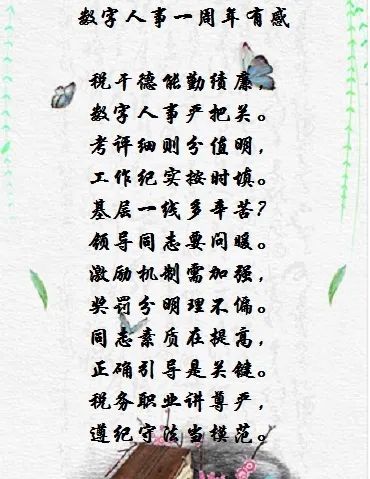 数字人事一周年有感
税干德能勤绩廉，
数字人事严把关。
考评细则分值明，
工作纪实按时填。
基层一线多辛苦？
领导同志要问暖。
激励机制需加强，
奖罚分明理不偏。
同志素质在提高，
正确引导是关键。
税务职业讲尊严，
遵纪守法当模范。